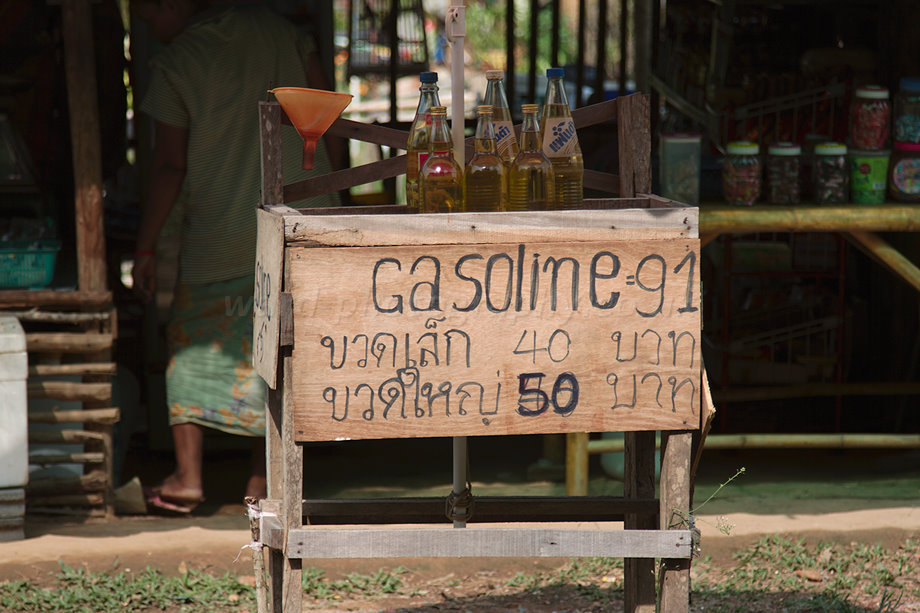 Gasoline=91
ขวดเล็ก 40 บาท
ขวดใหญ่ 50 บาท